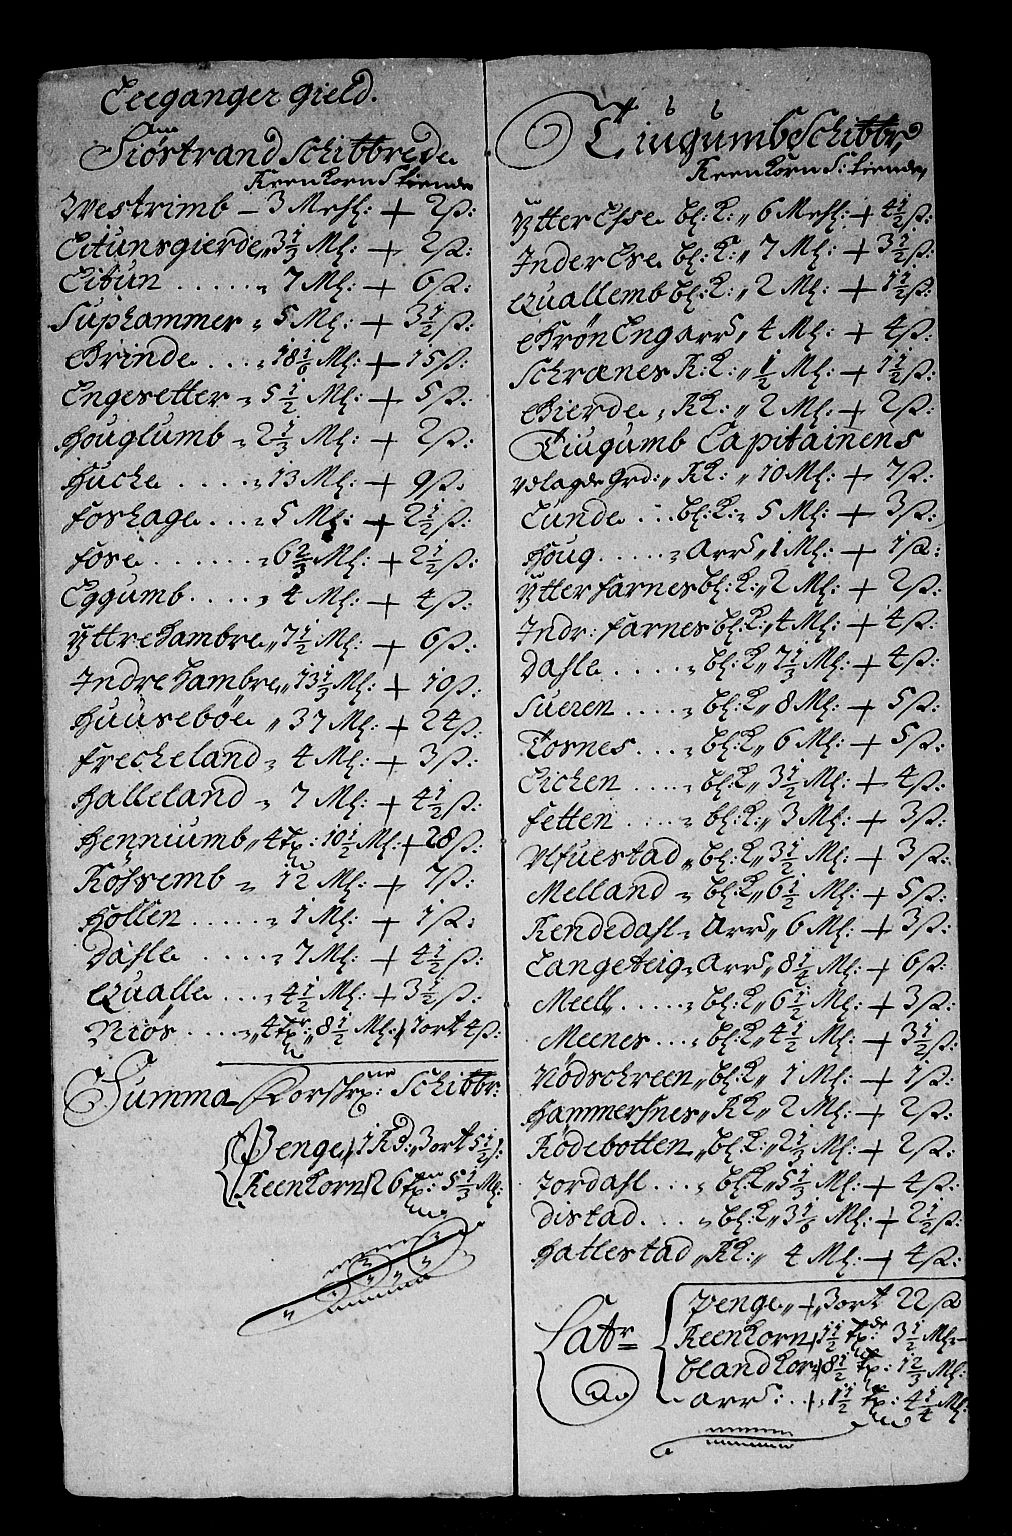 Leeganger gield.
Siöstrand Schibbrede
Reenkorns tiende
Westrimb — 3 Mesl: + 2 ß:
Eitunsgierde „ 3 1/3 Ml: + 2 ß:
Eitun . . . . . . „ 7 Ml: + 6 ß:
Suphammer „ 5 Ml: + 3 1/2 ß:
Grinde . . . . „ 18 1/6 Ml: + 15 ß:
Engesetter „ 5 1/2 Ml: + 5 ß:
Houglumb „ 2 1/3 Ml: + 2 ß:
Huche . . . . . „ 13 Ml: + 9 ß:
Foshage . . . „ 5 Ml: + 2 1/2 ß:
Fose . . . . . . . „ 6 2/3 Ml: + 2 1/2 ß:
Eggumb . . . . . „ 4 Ml: + 4 ß:
Yttre Hambre „ 7 1/2 Ml: + 6 ß:
Indre Hambre „ 13 1/3 Ml: + 10 ß:
Huusebøe „ 37 Ml: + 24 ß:
Frecheland „ 4 Ml: + 3 ß:
Halleland „ 7 Ml: + 4 1/2 ß:
Henniumb „ 4 tp: 10 1/2 Ml: + 28 ß:
Rossemb „ 12 Ml: + 7 ß:
Hollen . . . . . „ 1 Ml: + 1 ß:
Dahle . . . . . „ 7 Ml: + 4 1/2 ß:
Qualle . . . . „ 4 1/2 Ml: + 3 1/2 ß:
Niøs . . . . . „ 4 tp: 8 1/2 Ml: 1 ort 4 ß:
Summa Schibbr:
Penge 1 Rd: 3 ort 5 1/2 ß:
Reenkorn 26 tp: 5 1/3 Ml:
Tiugumb Schibbr,
Reenkorns: tiende
Ytter Ese bl: K: „ 6 Mesl: + 4 1/2 ß:
Inder Ese bl: K: „ 7 Ml: + 3 1/2 ß:
Quallemb bl: K: „ 2 Ml: + 1 1/2 ß:
Grön Eng arr „ 4 Ml: + 4 ß:
Schrænes R: K: „ 1/2 Ml: + 1 1/2 ß:
Gierde „ RK: „ 2 Ml: + 2 ß:
Tiugumb Capitainens
Udlagde Grd: „ RK: „ 10 Ml: + 7 ß:
Lunde . . . bl: K: „ 5 Ml: + 3 ß:
Houg . . . . . „ Arr „ 1 Ml: + 1 ß:
Ytter Farnes bl: K: „ 2 Ml: + 2 ß:
Indr: Farnes bl: K: „ 4 Ml: + 4 ß:
Dahle . . . . . „ bl: K „ 7 1/3 Ml: + 4 ß:
Sueren . . . . „ bl: K „ 8 Ml: + 5 ß:
Tosnes . . . . „ bl: K „ 6 Ml: + 5 ß:
Eichen . . . . . „ bl: K „ 3 1/2 Ml: + 4 ß:
Fetten . . . . „ bl: K: „ 3 Ml: + 3 ß:
Ulfuestad „ bl: K „ 3 1/2 Ml: + 3 ß:
Melland „ bl: K „ 6 1/2 Ml: + 5 ß:
Rendedahl „ Arr „ 6 Ml: + 3 ß:
Langeteig „ Arr „ 8 1/4 Ml: + 6 ß:
Meell . . . . . „ bl: K „ 6 1/2 Ml: + 3 ß:
Meenes . . . „ bl: K „ 4 1/2 Ml: + 3 1/2 ß:
Nödschreen „ bl: K „ 1 Ml: + 1 ß:
Hammersnes „ RK „ 2 Ml: + 2 ß:
Rödebotten „ bl: K: „ 2 1/3 Ml: + 2 ß:
Jordahl . . . „ bl: K „ 5 1/3 Ml: + 4 ß:
Distad . . . . „ bl: K „ 3 1/6 Ml: + 2 1/2 ß:
Hatlestad „ RK: „ 4 Ml: + 4 ß:
Penge „ + „ 3 ort 22 ß
Latr Reenkorn 1 1/2 tp: 3 1/2 Ml:
blandkorn 8 1/2 tp: 1 2/3 Ml:
arr: . . 1 1/2 tp: 4 1/4 Ml: